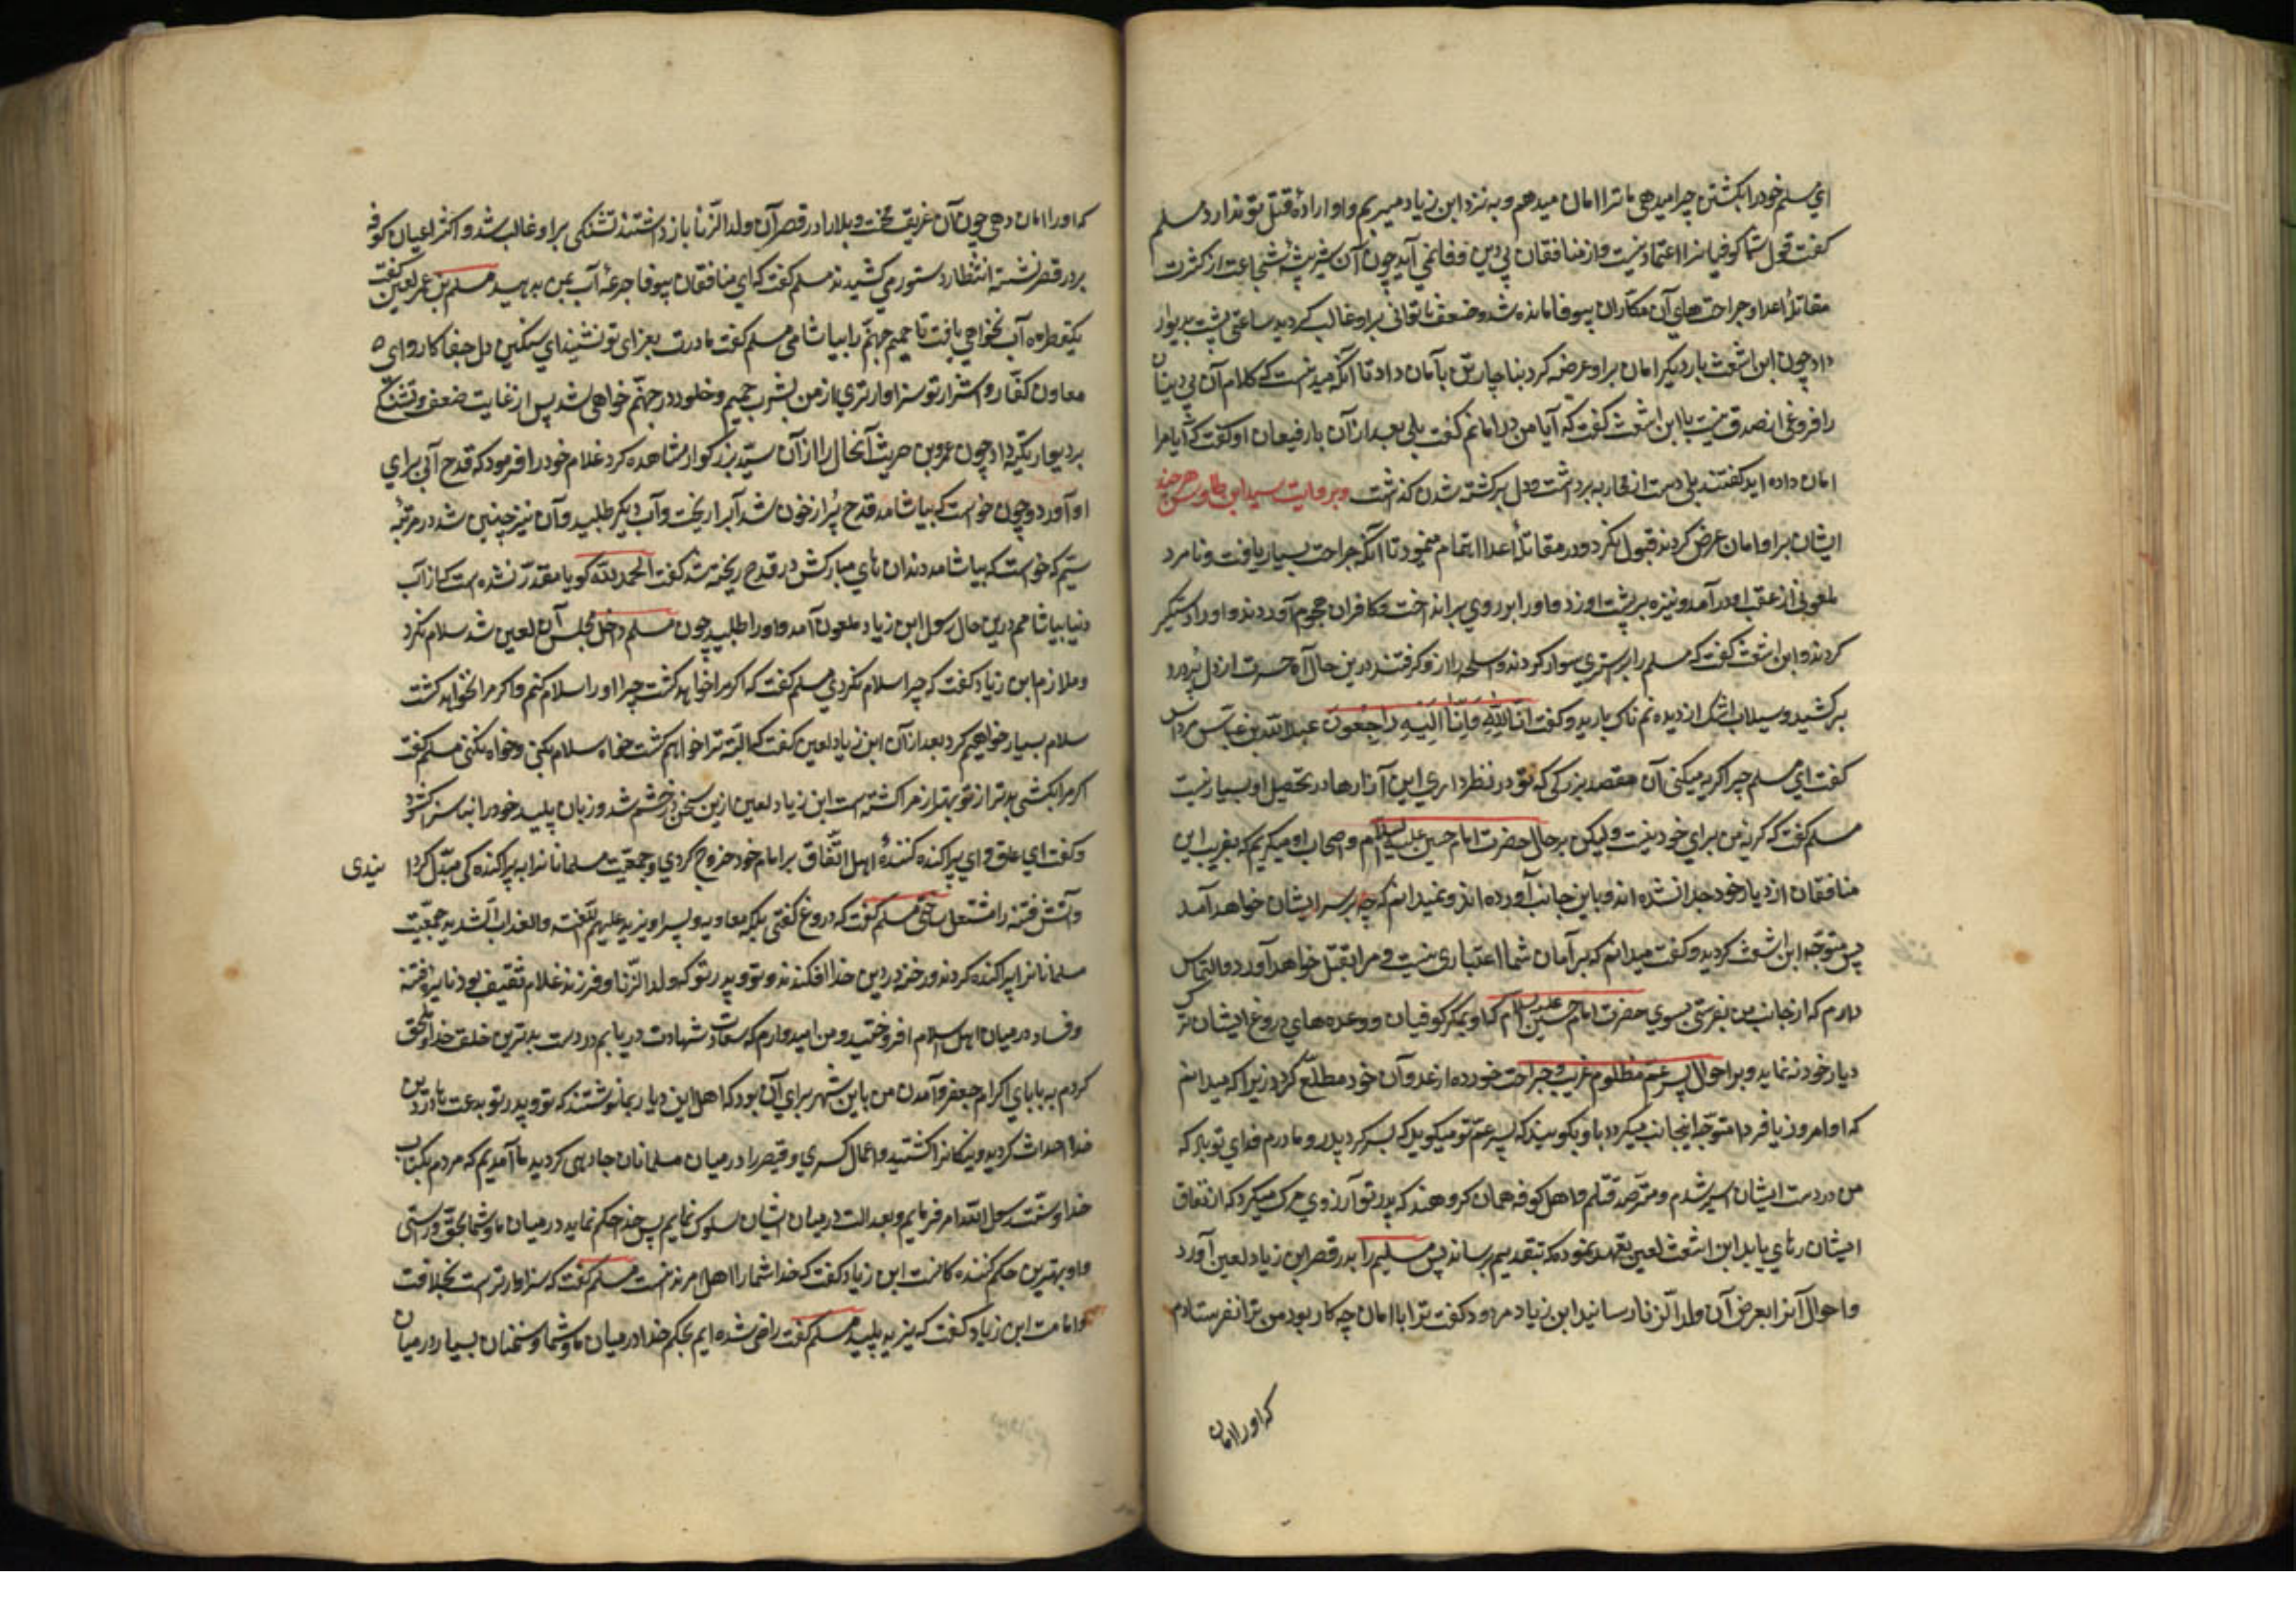 اي مسلم خود را بکشتن چرا ميدهي ما ترا امان ميدهم و به نزد ابن زياد ميبريم و او اراده قتل تو ندارد مسلم
گفت قول شما کوفيانرا اعتماد نيست و از منافقان بي دين وفا نمي آيد چون آن شير بيشه شجاعت از کثرت
مقاتله اعدا و جراحت هاي آن مکاران بيوفا مانده شد و ضعف ناتواني بر او غالب گرديد ساعتي پشت بديوار
داد چون ابن اشعث بار ديگر امان بر او عرض کرد بناچار تن بامان داد تا آنکه ميدانست که کلام آن بي دينان
را فروغي از صدق نيست با ابن اشعث گفت که آيا من در امانم گفت بلي بعد از آن با رفيقان او گفت که آيا مرا
امان داده ايد گفتند بلي دست از محاربه برداشت و دل بر کشته شدن گذاشت و بروايت سيد ابن طاوس هر چند
ايشان بر او امان عرض کردند قبول نکرد و در مقاتله اعدا اهتمام مينمود تا آنکه جراحت بسيار يافت و نامرد
ملعوني از عقب او در آمد و نيزه بر پشت او زد و او را بر وي برانداخت و کافران هجوم آوردند و او را دستگير
کردند و ابن اشعث گفت که مسلم را بر استري سوار کردند و اسلحه را از او گرفتند درين حال آه حسرت از دل پردرد
برکشيد و سيلاب اشک از ديده نمناک باريد و گفت انا لله و انا اليه راجعون عبدالله بن عباس مرداس
گفت اي مسلم چرا گريه ميکني آن مقصد بزرگي که تو در نظر داري اين آزارها در تحصيل او بسيار نيست
مسلم گفت که گريه من براي خود نيست وليکن بر حال حضرت امام حسين عليه السلام و اصحاب او ميگريم که بفريب اين
منافقان از ديار خود جدا شده اند و باين جانب آورده اند و نميدانم که چه بر سر ايشان خواهد آمد
پس متوجه ابن اشعث گرديد و گفت ميدانم که بر آمان شما اعتباري نيست و مرا بقتل خواهد آورد و التماس
دارم که از جانب من بفرستي بسوي حضرت امام حسين عليه السلام که او بمکر کوفيان و وعده هاي دروغ ايشان ترک
ديار خود ننمايد و بر احوال پسر عم مظلوم غريب و جراحت خورده از غدر آن خود مطلع گردد زيرا که ميدانم
که او امروز يا فردا متوجه اينجانب ميگردد با و بگوييد که پسر عم تو ميگويد که برگرد پدر و مادرم فداي تو باد که
من در دست ايشان اسير شدم و مترصد قتلم و اهل کوفه همان گروهند که پدر تو آرزوي مرگ ميکرد که از نفاق
ايشان رهاي يابد ابن اشعث لعين تعهد نمود که بتقديم برساند پس مسلم را بدر قصر ابن زياد لعين آورد
و احوال آنرا بعرض آن ولد الزنا رسانيد ابن زياد مردود گفت ترا با امان چه کار بود من ترا نفرستادم
که او را امان
که او را امان دهي چون آن غريق محنت و بلا را در قصر آن ولد الزنا باز داشتند تشنگي بر او غالب شد و اکثر اعيان کوفه
بر در قصر نشسته انتظار دستور مي کشيدند مسلم گفت که اي منافقان بيوفا جرعه آب بمن بدهيد مسلم بن عمر لعين گفت
يکقطره آب نخواهي يافت تا حميم جهنم را بياشامي مسلم گفت مادرت بعزاي تو نشيند اي سنگين دل جفاکار واي
معاون کفار و اشرار تو سزاوارتري از من بشرب حميم و خلود در جهنم خواهي شد پس از غايت ضعف و تشنگي
بر ديوار تکيه داد چون عمرو بن حريث آنحال را از آن سيد بزرگوار مشاهده کرد غلام خود را فرمود که قدح آبي براي
او آورد و چون خواست که بياشامد قدح پر از خون شد آبرا ريخت و آب ديگر طلبيد و آن نيز چنين شد در مرتبه
سيم که خواست که بياشامد دندان هاي مبارکش در قدح ريخته شد گفت الحمد لله گويا مقدر نشده است که از آب
دنيا بياشامم درين حال رسول ابن زياد ملعون آمد و او را طلبيد چون مسلم داخل مجلس آن لعين شد سلام نکرد
و ملازم ابن زياد گفت که چرا سلام نکردي مسلم گفت که اگر مرا خواهد کشت چرا او را سلام کنم و اگر مرا نخواهد کشت
سلام بسيار خواهيم کرد بعد از آن ابن زياد لعين گفت که البته ترا خواهم کشت خواه سلام بکني و خواه نکني مسلم گفت
اگر مرا بکشي بدتر از تو بهتر از مرا کشته است ابن زياد لعين ازين سخن در خشم شد و زبان پليد خود را بناسزا گشود
و گفت اي عاق و اي پراکنده کننده اهل اتفاق بر امام خود خروج کردي و جمعيت مسلمانانرا به پراکنده گي مبدل گردا نيدي
و آتش فتنه را مشتعل ساختي مسلم گفت که دروغ گفتي بلکه معاويه و پسر او يزيد عليهم اللعنه والعذاب الشديد جمعيت
مسلمانانرا پراکنده کردند و رخنه در دين خدا افکندند و تو و پدر تو که ولد الزنا و فرزند غلام ثقيف بود نايره فتنه
و فساد در ميان اهل اسلام افروختيد و من اميدوارم که سعادت شهادت دريابم در دست بدترين خلق خدا و ملحق
گردم به باباي اکرام جعفر و آمدن من باين شهر براي آن بود که اهل اين ديار بما نوشتند که تو و پدر تو بدعت ها در دين
خدا احداث کرديد و نيکانرا کشتيد و اعمال کسري و قيصر را در ميان مسلمانان جاري کرديد ما آمديم که مردم بکتاب
خدا و سنت رسول الله امر فرمايم و بعدالت در ميان ايشان سلوک نمايم پس خدا حکم نمايد در ميان ما و شما بحق و راستي
و او بهترين حکم کننده گانست ابن زياد گفت که خدا شما را اهل امر ندانست مسلم گفت که سزاوارتر است بخلافت
و امامت ابن زياد گفت که يزيد پليد مسلم گفت راضي شده ايم بحکم خدا در ميان ما و شما و سخنان بسيار در ميان